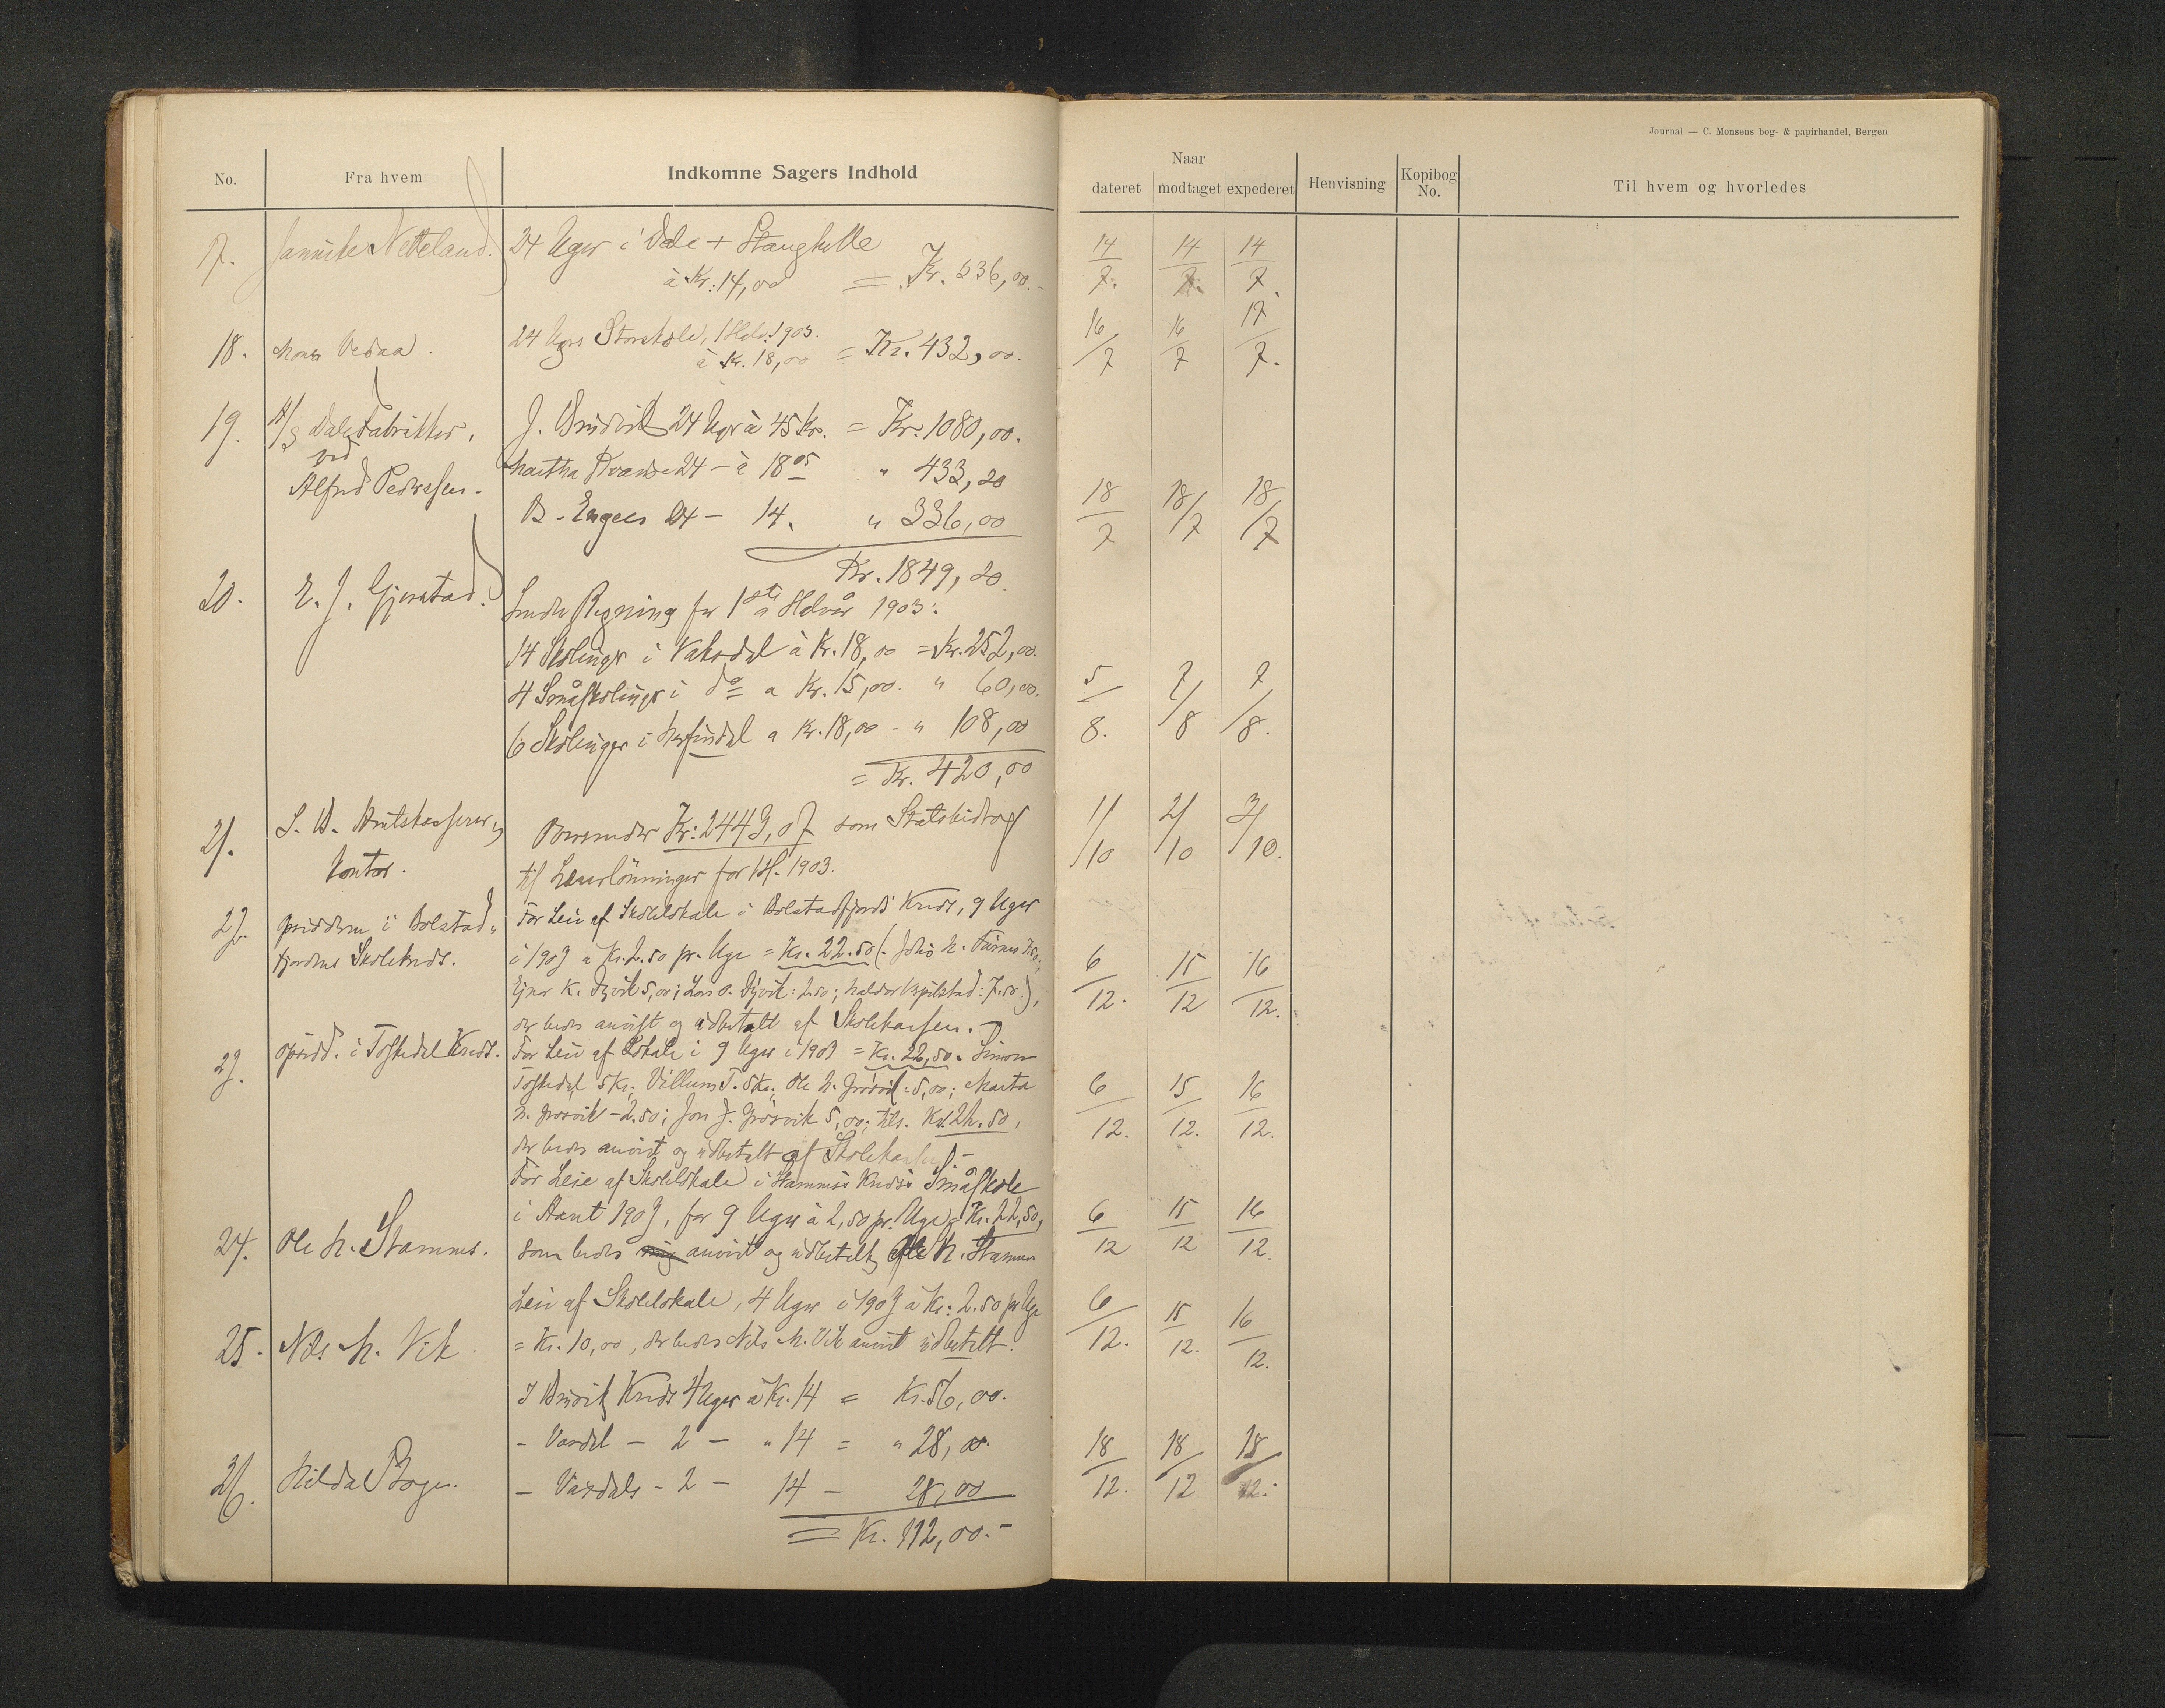 Journal — C. Monsens bog- & papirhandel, Bergen
No.
Fra hvem
Indkomne Sagers Indhold
Naar
dateret
modtaget
expederet
Henvisning
Kopibog No.
Til hvem og hvorledes
17. Jannike Netteland. 24 Uger i Dale + Stanghelle 14/7. 14/7. 14/7.
à Kr: 14,00 = Kr. 336,00.-
18. Mons Vedaa. 24 Ugers Storskole, 1 Halv. 1903. 16/7 16/7 17/7.
à Kr. 18,00 = Kr. 432,00.
19. A/S Dale Fabrikker, J. Brudvik 24 Uger à 45 Kr. = Kr. 1080,00.
ved Martha 24 - à 18 05 " 433,20
Alfred Pedersen. B. Enges 24 - 14. " 336,00 18/7 18/7 18/7
Kr. 1849,20.
20. E. J. Gjerstad. Sender Regning for 1ste Halvår 1903:
14 Skoleuger i Vaksdal à Kr. 18,00 = Kr. 252,00.
4 Småskoleuger i do a Kr. 15,00. " 60,00. 5/8. 7/8 7/8.
6 Skoleuger i Herfindal a Kr. 18,00 - " 108,00
= Kr. 420,00
21. S. B. Amtskasserers Oversender Kr: 2443,07 som Statsbidrag 1/10 2/10 3/10.
Kontor. til Lærerlønninger for 1H. 1903.
22. Opsidderne i Bolstad- For Leie af Skolelokale i Bolstadfjords Kreds, 9 Uger
fjordens Skolekreds. i 1903 a Kr. 2.50 pr. Uge = Kr. 22.50 (. 6/12. 15/12 16/12.
K. Dyvik 5,00; Lars O. Dyvik: 2.50; Haldor : 7.50.),
der bedes anvist og udbetalt af Skolekassen.
23. Opsidd. i Toskedal Kreds. For Leie af Lokale i 9 Uger i 1903 = Kr. 22,50. Simon
Toskedal 5 Kr; Villum T. 5 Kr; Ole N. Grøsvik: 5,00; Marta 6/12. 15/12. 16/12.
N. Grøsvik - 2.50; Jon J. Grøsvik 5,00; tils. Kr. 22.50,
der bedes anvist og udbetalt af Skolekassen. -
For Leie af Skolelokale i Stamnes Kreds's Småskole
i Aaret 1903, for 9 Uger à 2,50 pr. Uge = Kr. 22,50, 6/12 15/12 16/12.
24. Ole N. Stamnes. som bedes mig anvist og udbetalt Ole N. Stamnes
Leie af Skolelokale, 4 Uger i 1903 à Kr: 2.50 pr Uge 6/12. 15/12. 16/12.
25. Nils M. Vik = Kr. 10,00, der bedes Nils M. Vik anvist udbetalt.
I Kreds 4 Uger à Kr. 14 = Kr. 56,00.
- - 2 - " 14 = " 28,00. 18/12. 18/12 18/12.
26. Hilda Boge. - - 2 - 14 - 28,00
= Kr. 112,00.-